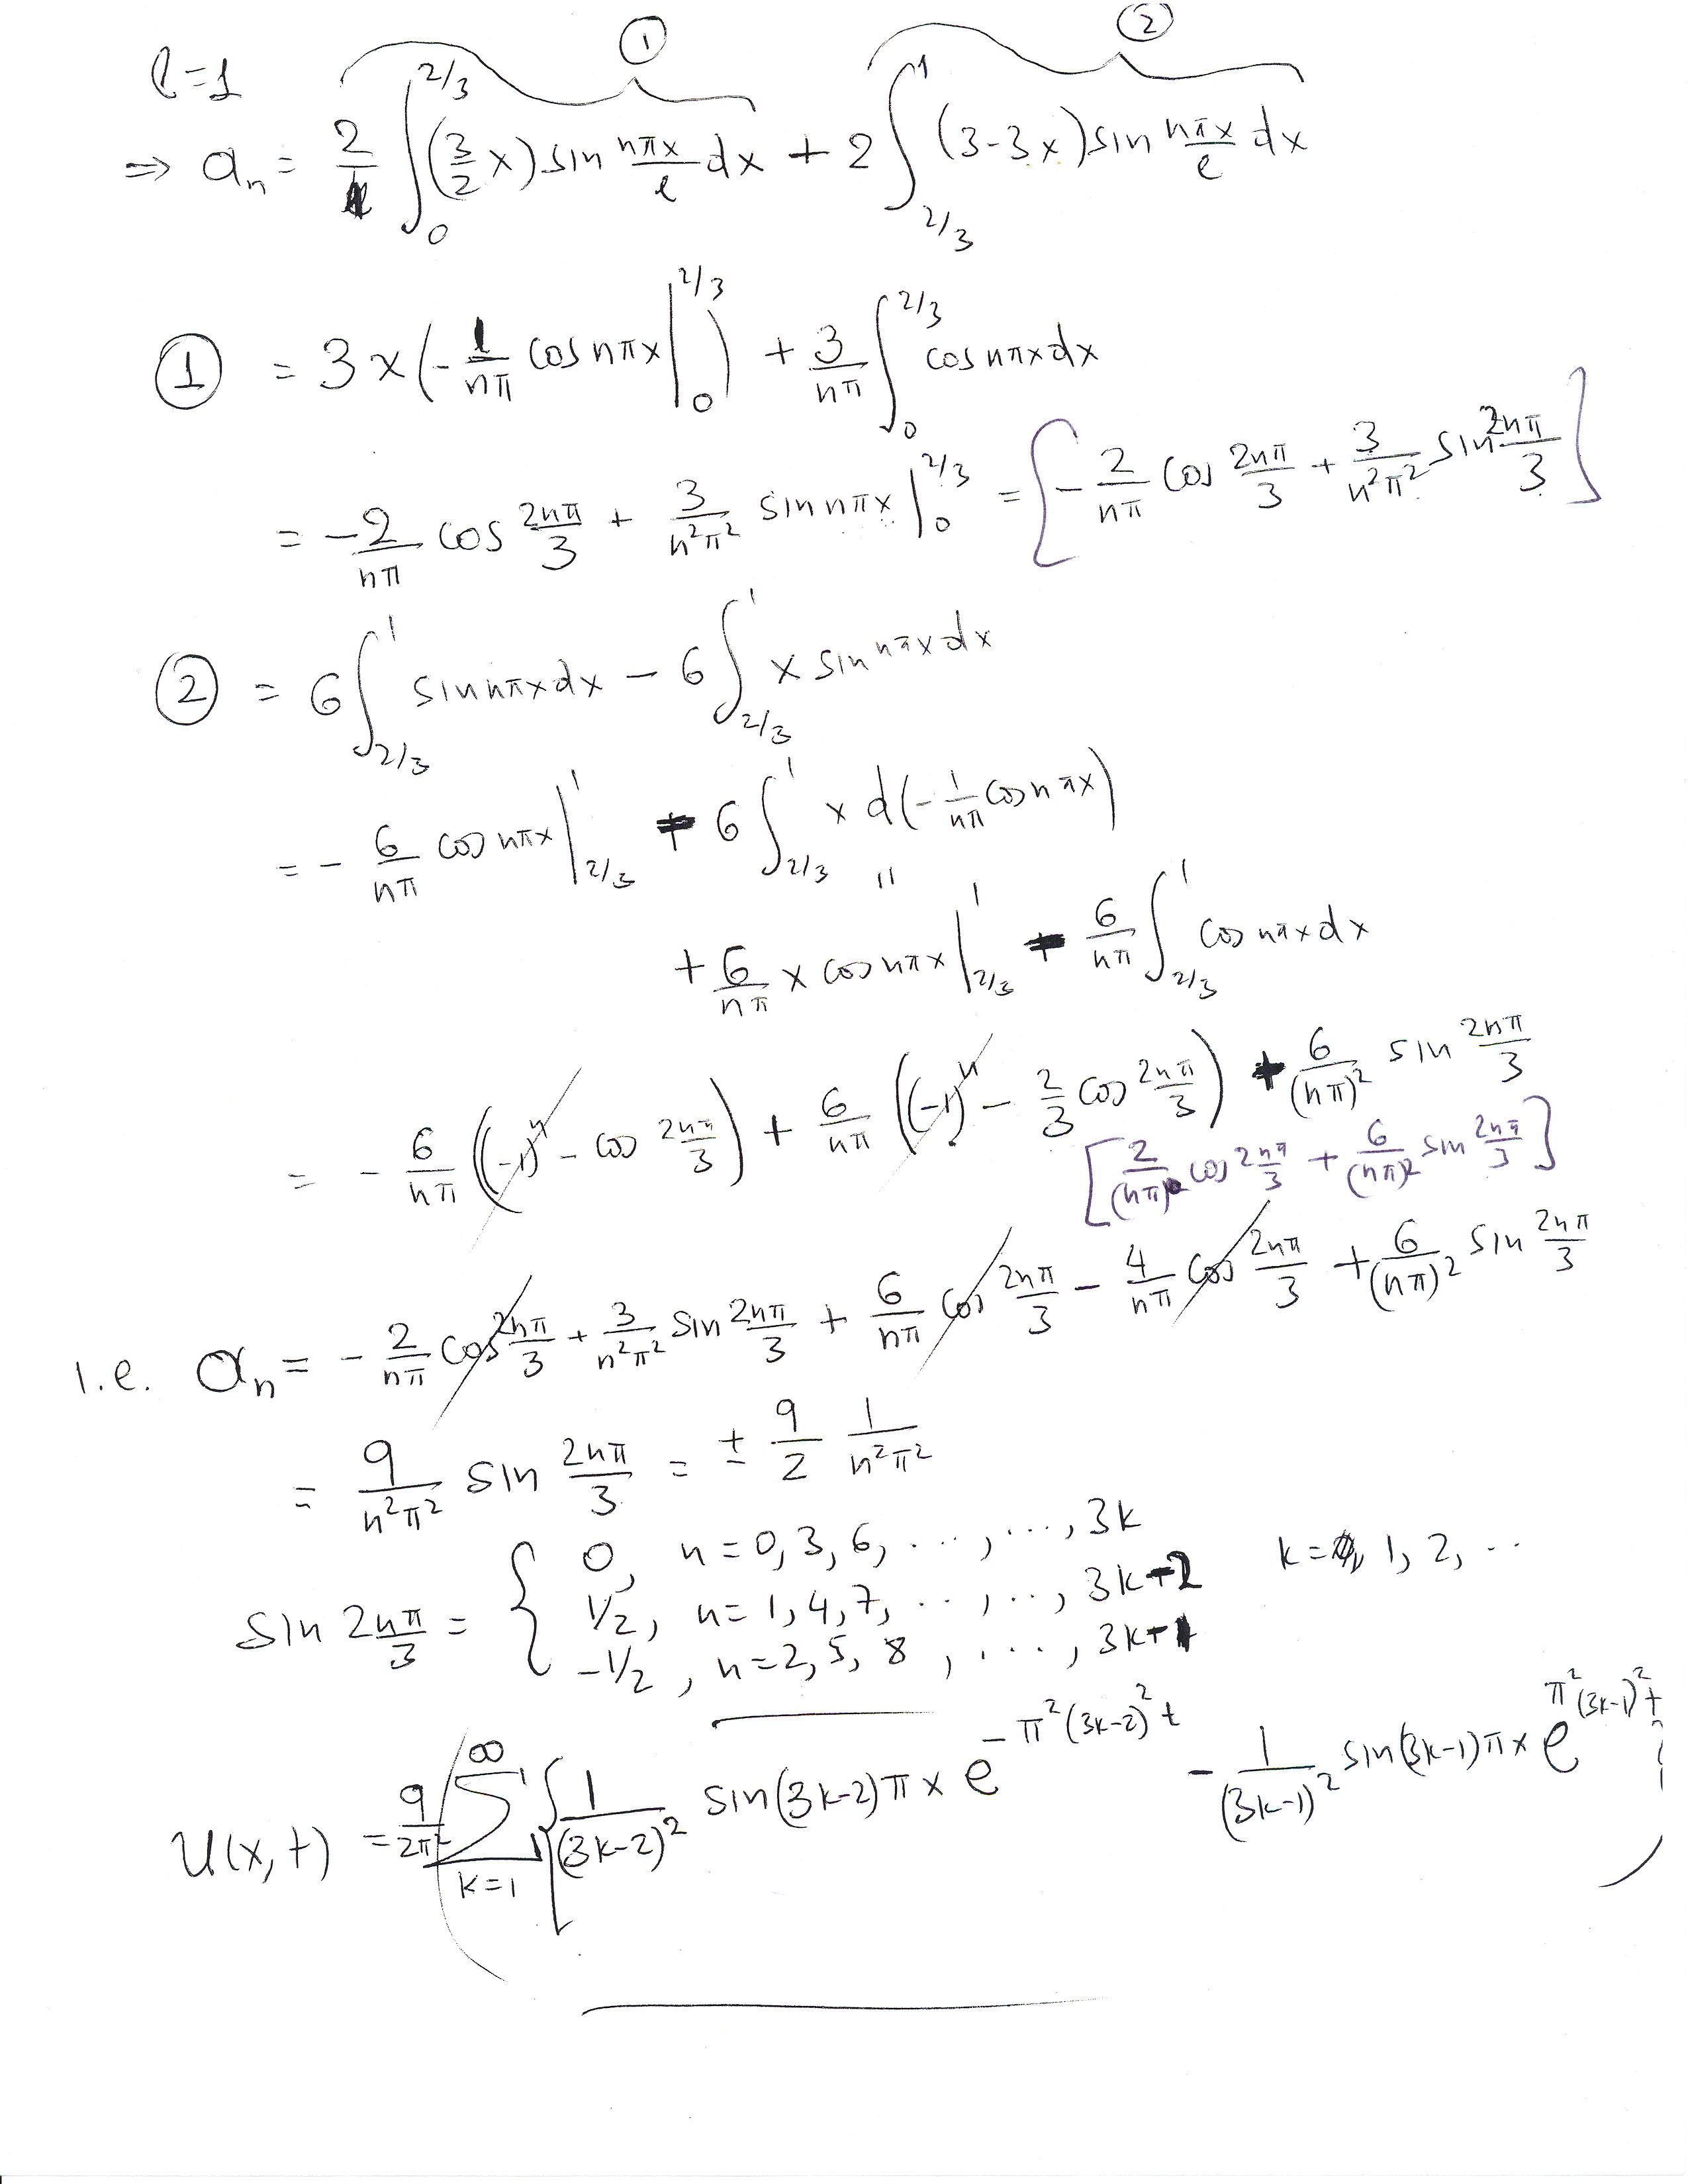 ① ②
l=1
⇒ aₙ = 2/1 ∫₀^{2/3} (3/2 x) sin nπx/l dx + 2 ∫_{2/3}^1 (3-3x) sin nπx/l dx
① = 3x(-1/nπ cos nπx |₀^{2/3}) + 3/nπ ∫₀^{2/3} cos nπx dx
= -2/nπ cos 2nπ/3 + 3/n²π² sin nπx |₀^{2/3} = [-2/nπ cos 2nπ/3 + 3/n²π² sin 2nπ/3]
② = 6 ∫_{2/3}^1 sin nπx dx - 6 ∫_{2/3}^1 x sin nπx dx
= - 6/nπ cos nπx |_{2/3}^1 - 6 ∫_{2/3}^1 x d(-1/nπ cos nπx)
"
+ 6/nπ x cos nπx |_{2/3}^1 - 6/nπ ∫_{2/3}^1 cos nπx dx
= - 6/nπ ((-1)ⁿ - cos 2nπ/3) + 6/nπ ((-1)ⁿ - 2/3 cos 2nπ/3) + 6/(nπ)² sin 2nπ/3
[2/(nπ) cos 2nπ/3 + 6/(nπ)² sin 2nπ/3]
i.e. aₙ = - 2/nπ cos 2nπ/3 + 3/n²π² sin 2nπ/3 + 6/nπ cos 2nπ/3 - 4/nπ cos 2nπ/3 + 6/(nπ)² sin 2nπ/3
= 9/n²π² sin 2nπ/3 = ± 9/2 1/n²π²
sin 2nπ/3 = { 0, n=0,3,6, ..., ..., 3k k = 1, 2, ..
1/2, n=1,4,7, ..., .., 3k-2
-1/2, n=2,5,8, ..., 3k-1
u(x,t) = 9/2π² ( Σ_{k=1}^∞ [ 1/(3k-2)² sin(3k-2)πx e^{-π²(3k-2)²t} - 1/(3k-1)² sin(3k-1)πx e^{π²(3k-1)²t} )